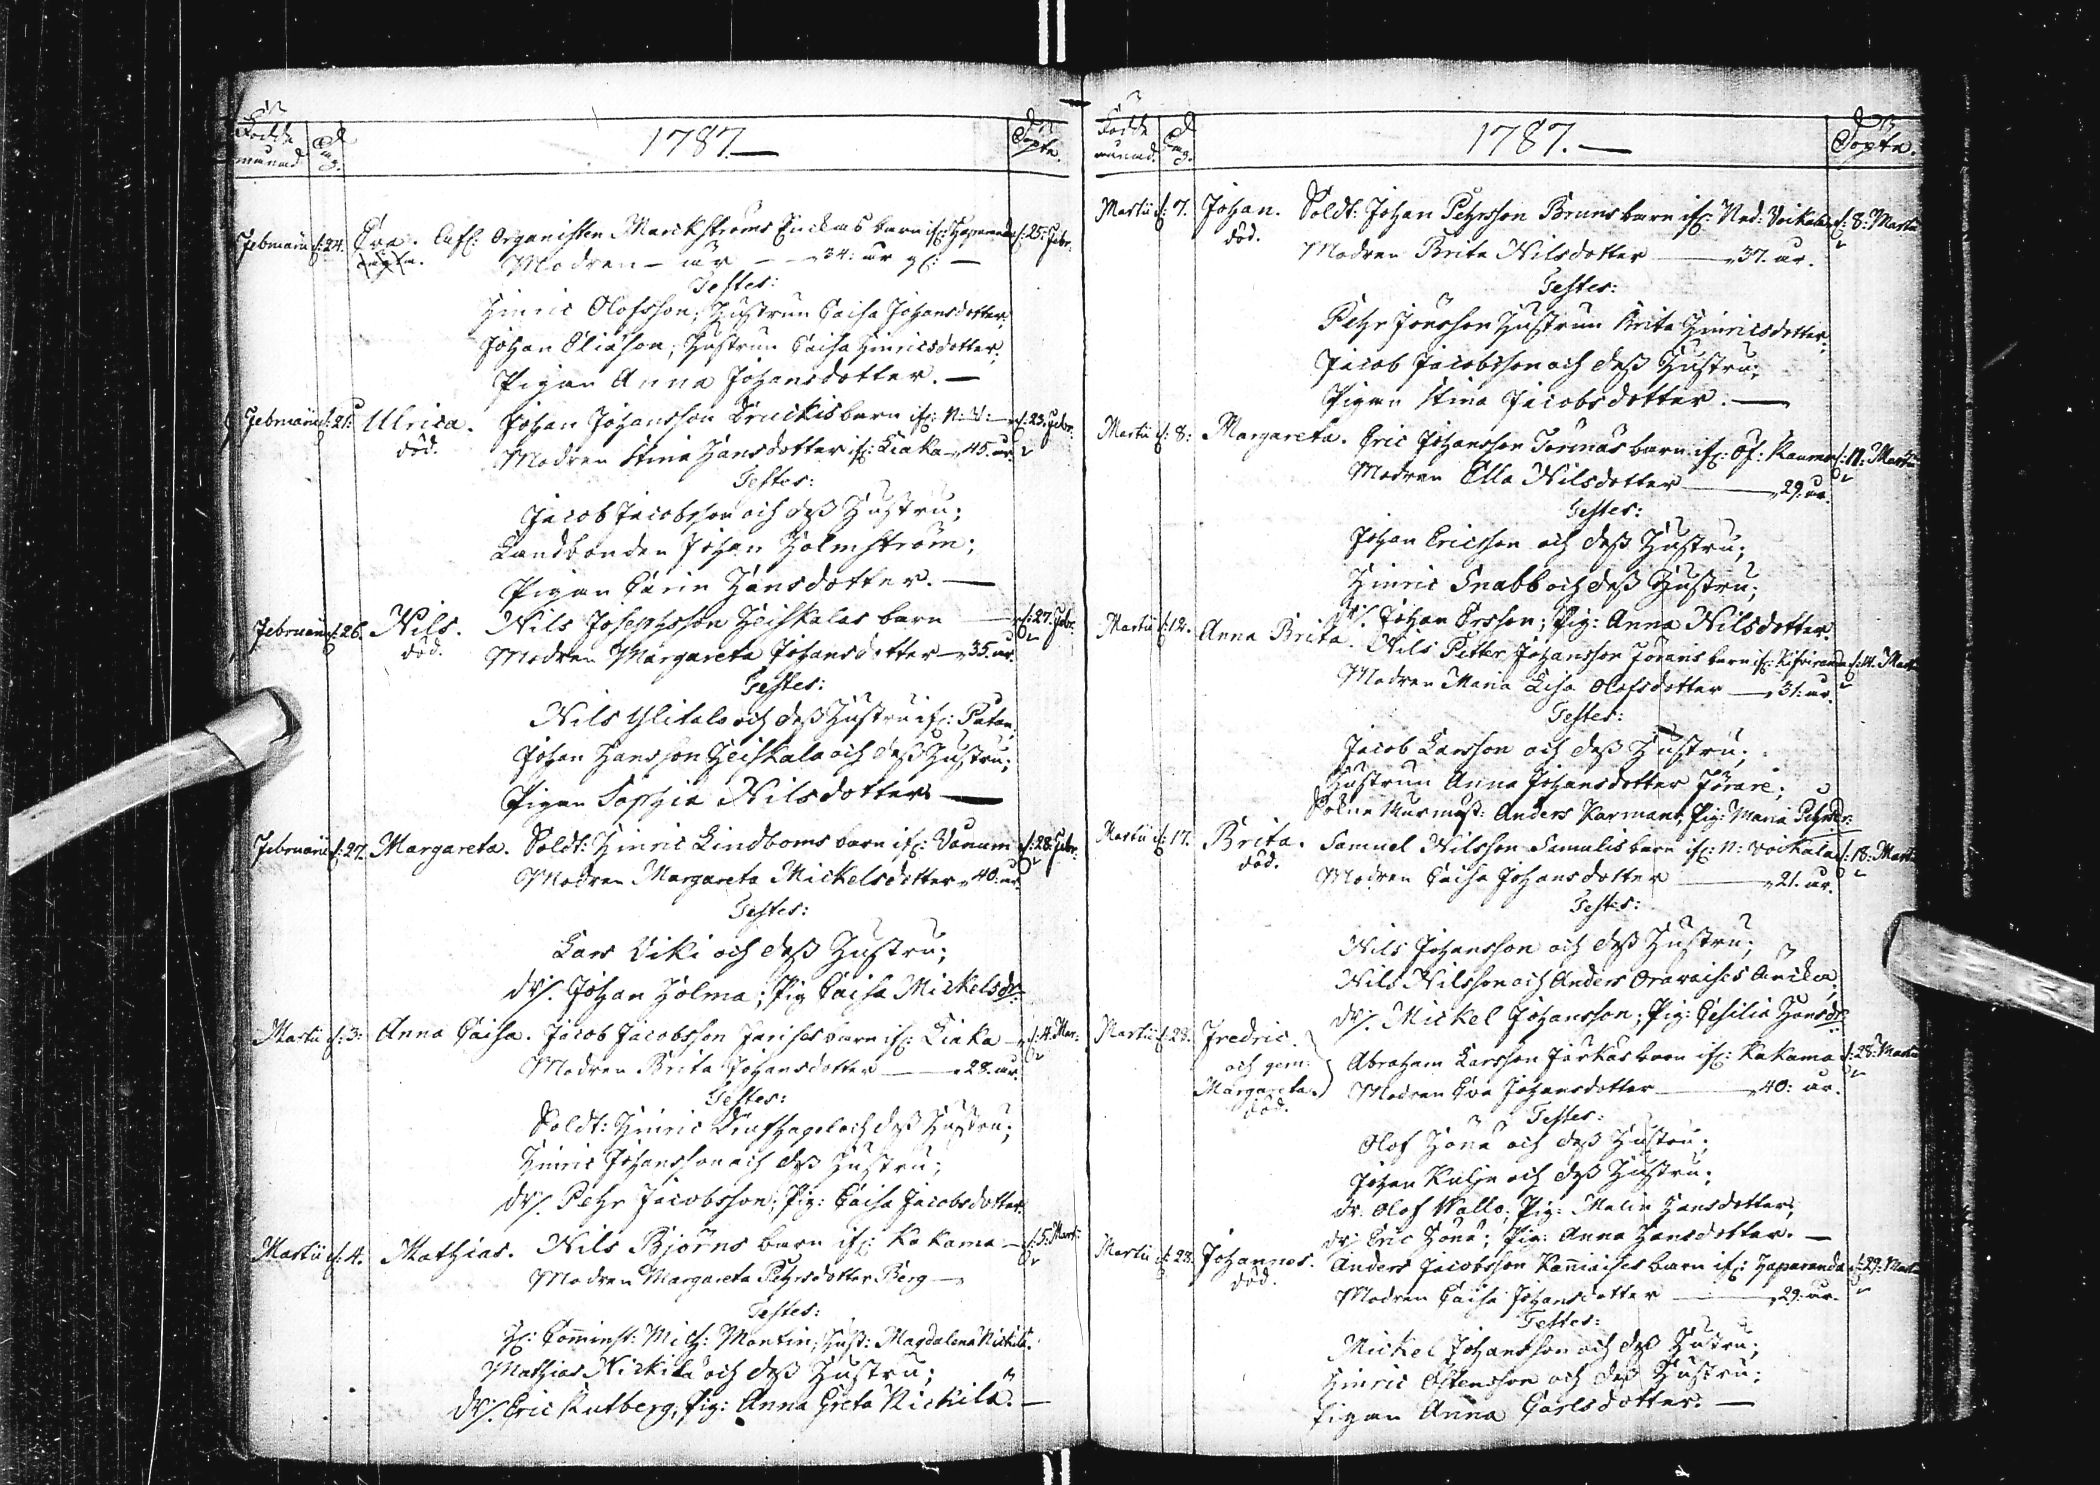 Födde månad Dag. 1787. Döpte.
Februarii d: 24. Eva. Organisten Marckströms Enckas barn if: Haparanda d: 25: Febr:
Modren - år - 34: år g:
Testes:
Hinric Olofsson, Hustrun Caisa Johansdotter;
Johan Eliasson; Hustrun Caisa Hinricsdotter;
Pigan Anna Johansdotter.
Februarii d: 21: Ulrica. Johan Johansson barn if: N: V: d: 23. Febr:
död. Modren Stina Hansdotter if: Kiaka 45. år.
Testes:
Jacob Jacobsson och dess Hustru;
Landbonden Johan Holmström;
Pigan Carin Hansdotter.
Februarii d: 26. Nils. Nils Josephsson Heiskalas barn d: 27. Febr:
död. Modren Margareta Johansdotter 35. år.
Testes:
Nils Ylitalo och dess Hustru if:
Johan Hansson Heiskala och dess Hustru;
Pigan Sophia Nilsdotter
Februarii d: 27. Margareta. Soldt: Hinric Lindboms barn if: d: 28: Febr:
Modren Margareta Mickelsdotter 40. år
Testes:
Lars Viki och dess Hustru;
dr/. Johan Holma; Pig Caisa Mickelsdr:
Martii d: 3: Anna Caisa. Jacob Jacobsson barn if: Kiaka d: 4. Mar:
Modren Brita Johansdotter 28. år.
Testes:
Soldt: Hinric och dess Hustru;
Hinric Johansson och dess Hustru;
dr/. Pehr Jacobsson; Pig: Caisa Jacobsdotter.
Martii d: 4. Mathias. Nils Björns barn if: Kakama d: 5: Mart:
Modren Margareta Pehrsdotter Berg
Testes:
Hr: Comminist: Mich: Montin; Hust: Magdalena Nickilä.
Mathias Nickilä och dess Hustru;
dr/. Eric Rutberg; Pig: Anna Greta Nickilä.
Födde månad. Dag. 1787. Döpte.
Martii d: 7. Johan. Soldt: Johan Pehrsson Bruns barn if: Ned: Voikala d: 8: Martii
död. Modren Brita Nilsdotter 37. år.
Testes:
Pehr Jönsson Hustrun Brita Hinricsdotter;
Jacob Jacobsson och dess Hustru;
Pigan Stina Jacobsdotter.
Martii d: 8: Margareta. Eric Johansson Törmäs barn if: Öf: d: 11: Martii
Modren Ella Nilsdotter 29. år.
Testes:
Johan Ericsson och dess Hustru;
Hinric Snabb och dess Hustru;
dr/. Johan Ersson; Pig: Anna Nilsdotter.
Martii d: 12. Anna Brita. Nils Petter Johansson barn if: d: 14. Martii
Modren Maria Lisa Olofsdotter 31. år
Testes:
Jacob Larsson och dess Hustru;
Hustrun Anna Johansdotter
Anders Pig: Maria Pehrsdr:
Martii d: 17. Brita. Samuel Nilsson Samulis barn if: N: Voikala d: 18: Martii
död. Modren Caisa Johansdotter 21. år.
Testes:
Nils Johansson och dess Hustru;
Nils Nilsson och Anders Oravaises Äncka;
dr/. Mickel Johansson; Pig: Cesilia Hansdr:
Martii d: 23. Fredric.
och gem: Abraham Larsson barn if: Kakama d: 28: Martii
Margareta. Modren Eva Johansdotter 40: år.
död. Testes:
Olof och dess Hustru;
Johan och dess Hustru;
dr: Olof Pig: Malin Hansdotter;
dr/ Eric Pig: Anna Hansdotter.
Martii d: 28. Johannes. Anders Jacobsson barn if: Haparanda d: 29: Martii
död. Modren Caisa Johansdotter 29. år.
Testes:
Mickel Johansson och dess Hustru;
Hinric Östensson och dess Hustru;
Pigan Anna Carlsdotter.